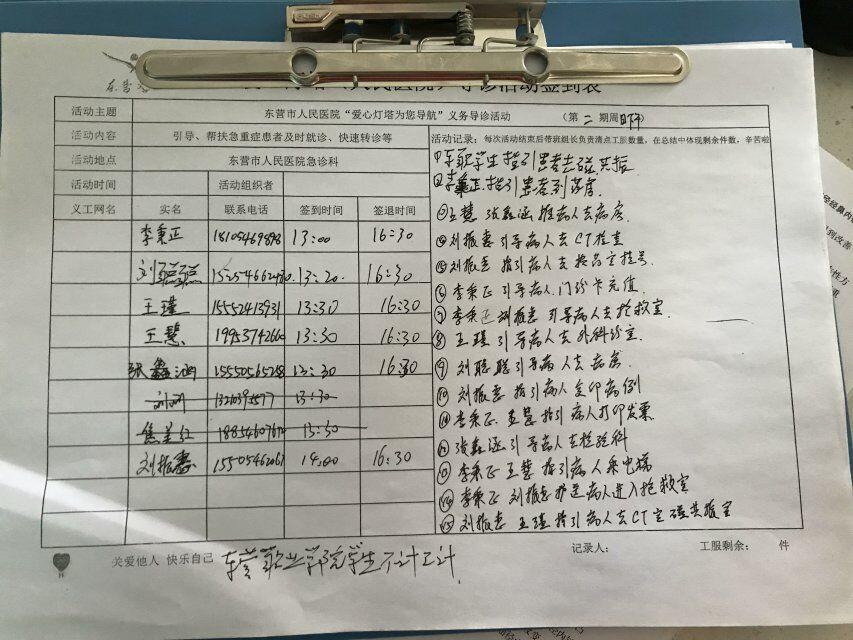 东营
人民医院 导诊活动签到表
活动主题 东营市人民医院“爱心灯塔为您导航”义务导诊活动 （第二期周
活动内容 引导、帮扶急重症患者及时就诊、快速转诊等
活动地点 东营市人民医院急诊科
活动时间 活动组织者
义工网名 实名 联系电话 签到时间 签退时间
李秉正 18105469898 13:00 16:30
刘聪聪 13:20 16:30
王瑾 15552413931 13:30 16:30
王慧 13:30 16:30
张鑫涵 15550565258 13:30 16:30
13:30
13:30
刘振惠 15505462061 14:00 16:30
活动记录：每次活动结束后带班组长负责清点工服数量，在总结中体现剩余件数，辛苦啦
①东职学生指引患者去磁共振
②李秉正指引患者到药房
③王慧 张鑫涵推病人去病房
④刘振惠引导病人去CT检查
⑤刘振惠 指引病人去 挂号
⑥李秉正引导病人门诊卡充值
⑦李秉正刘振惠引导病人去抢救室
⑧王瑾引导病人去外科诊室
⑨刘聪聪引导病人去病房
⑩刘振惠 指引病人复印病例
⑪李秉正 王慧 指引病人打印发票
⑫张鑫涵引导病人去检验科
⑬李秉正 王慧 指引病人乘电梯
⑭李秉正 刘振惠护送病人进入抢救室
⑮刘振惠 王瑾指引病人去CT室磁共振室
关爱他人 快乐自己 东营职业学院学生不计工计
记录人： 工服剩余： 件